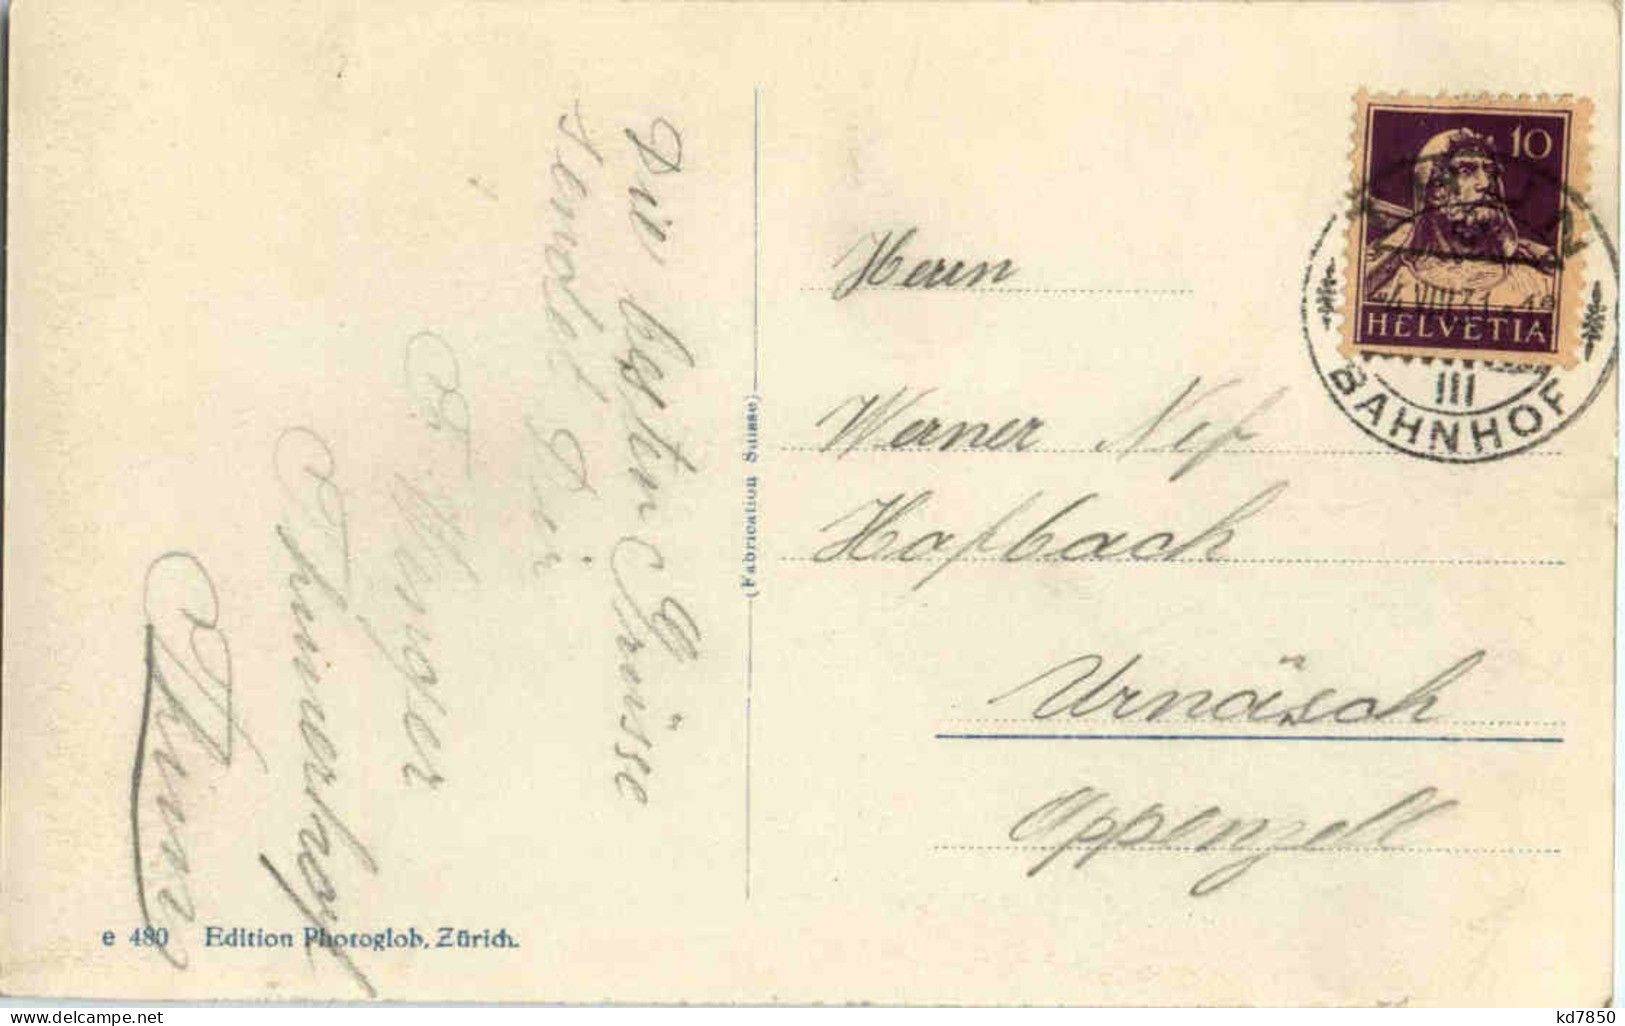 Die besten Grüsse
sendet Dir
F. Wenger
Thunerhof
Thun
e 480 Edition Photoglob, Zürich.
(Fabrication Suisse)
10
HELVETIA
VIII.31
III
BAHNHOF
Herrn
Werner Nef
Hofbach
Urnäsch
Appenzell
delcampe.net
kd7850